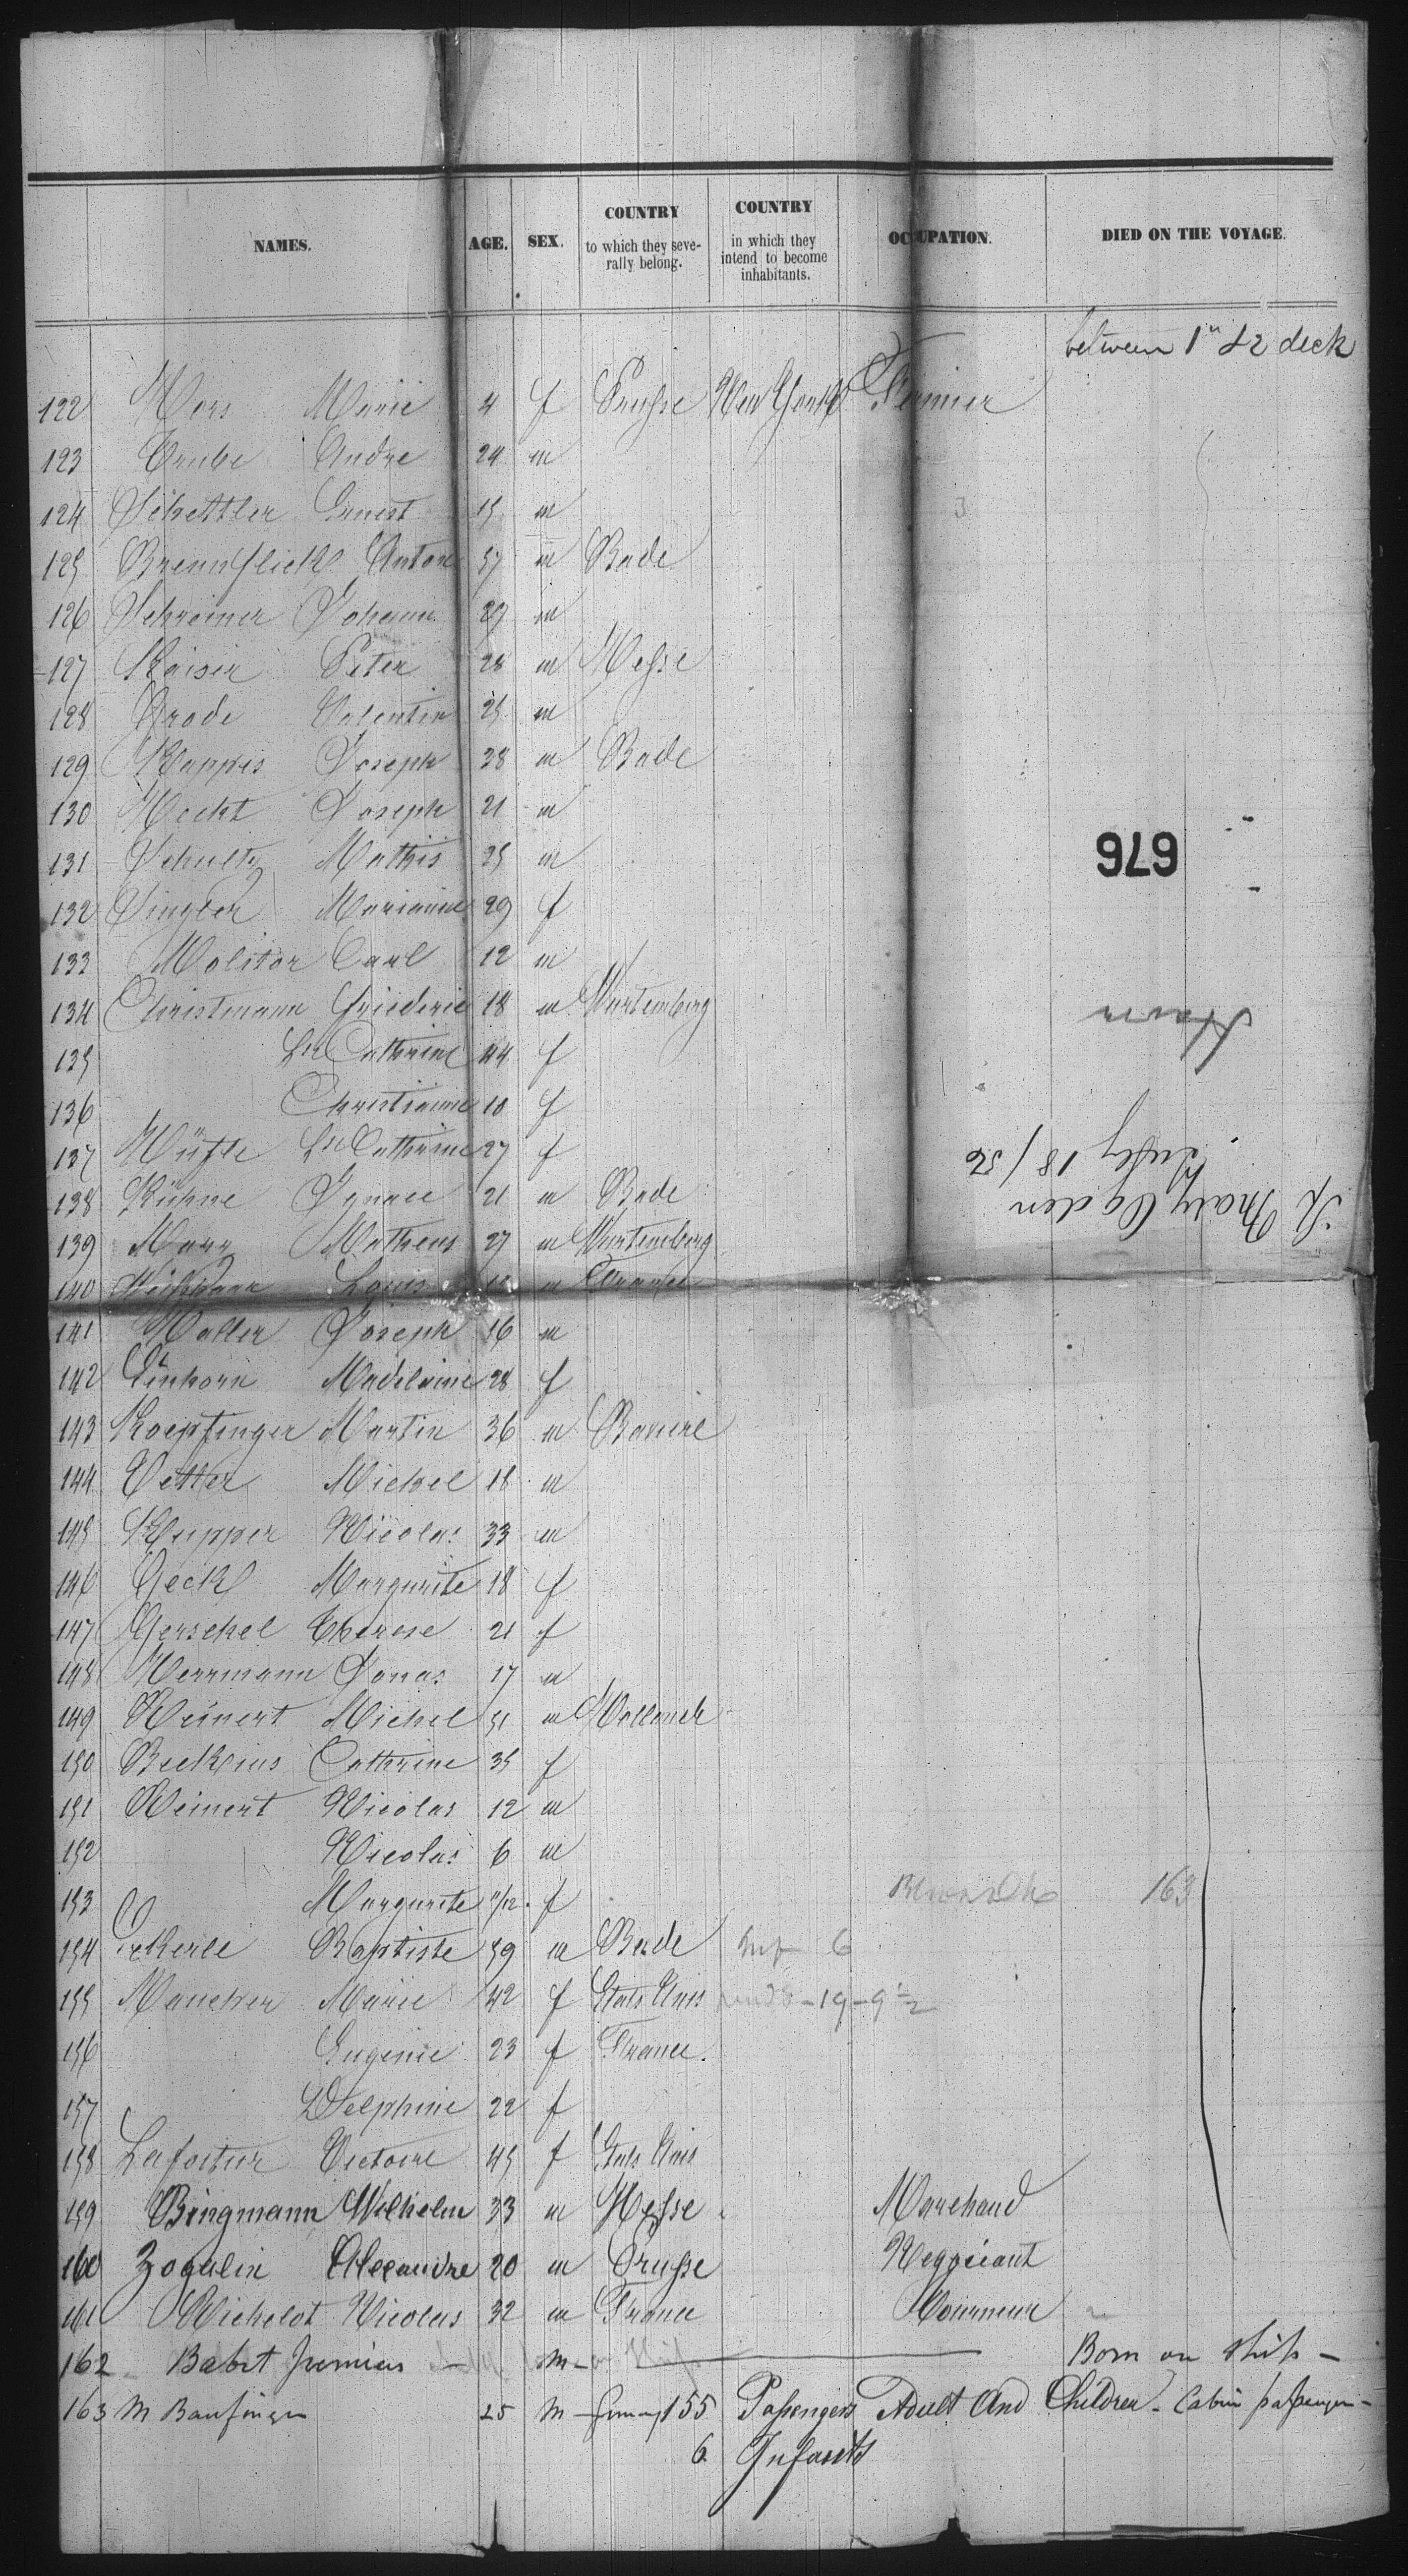 NAMES. AGE. SEX. COUNTRY to which they seve-rally belong. COUNTRY in which they intend to become inhabitants. OCCUPATION. DIED ON THE VOYAGE.
between 1st & 2 deck
122 Hors Marie 4 f Prusse New York Fermier
123 Grube Andre 24 m
124 Schettler Ernest 15 m
125 Brennfleck Anton 37 m Bade
126 Schreiner Johann 29 m
127 Kaiser Peter 28 m Hesse
128 Grode Valentin 25 m
129 Kappes Joseph 38 m Bade
130 Hecht Joseph 21 m
131 Schultz Mathis 25 m
132 Singler Marianne 29 f
133 Molitor Carl 12 m
134 Christmann Friederic 18 m Wurtemberg
135 Cathrine 44 f
136 Christianne 10 f
137 Cathrine 27 f
138 Kühne Ignace 21 m Bade
139 Marx Matheus 27 m Wurtemberg
140 Louis m France
141 Haller Joseph 16 m
142 Einhorn Madelaine 28 f
143 Koepfinger Martin 36 m Baviere
144 Vetter Michel 18 m
145 Kupper Nicolas 33 m
146 Geck Margurite 18 f
147 Gerschel Therese 21 f
148 Herrmann Jonas 17 m
149 Reinert Michel 51 m Hollande
150 Beckius Cathrine 35 f
151 Reinert Nicolas 12 m
152 Nicolas 6 m
153 Margurite 11/12 f 163
154 Eckerle Baptiste 59 m Bade Inf 6
155 Mancher Marie 42 f Etats Unis - 19 - 9 1/2
156 Eugenie 23 f France.
157 Delphine 22 f
158 Lafortur Victoire 45 f Etats Unis
159 Bingmann Wilhelm 33 m Hesse Marchand
160 Zogalin Alexandre 20 m Prusse Negociant
161 Michelot Nicolas 32 m France Tourneur
162 Babet m Born on Ship -
163 M Baufinger 25 m 155 Passengers Adult And Children - Cabin passenger -
6 Infants
676
Havre
S. Mary Ogden
July 18/56